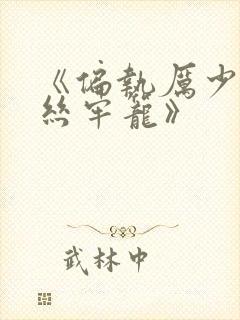 《偏執厲少
絲牢籠》
武林中